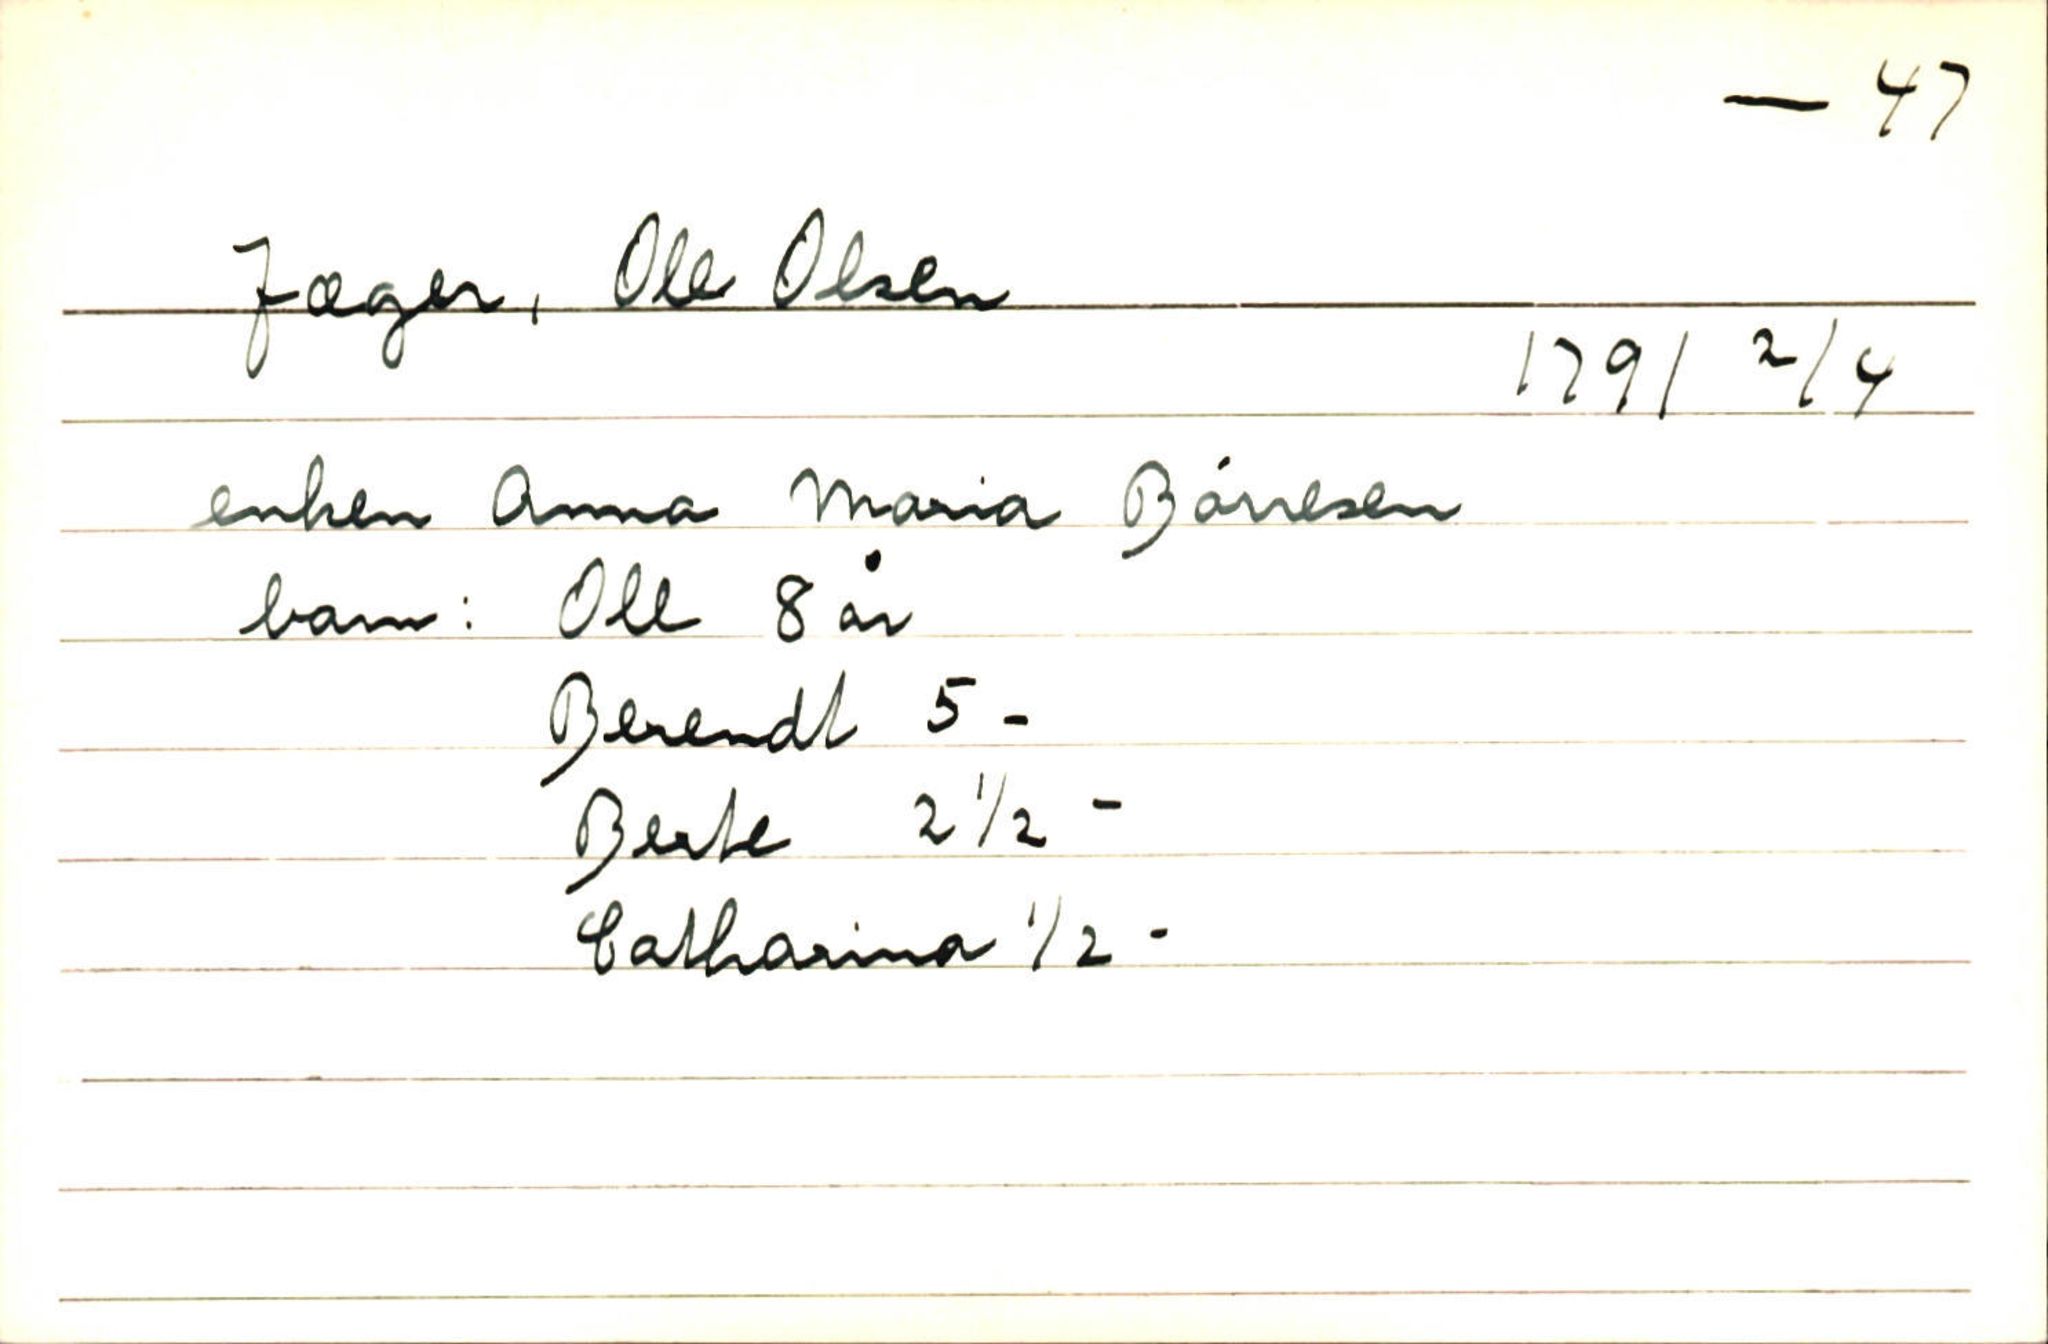 — 47
Jæger, Ole Olsen
1791 2/4
enken Anna Maria Børresen
barn: Ole 8 år
Berendt 5 -
Berte 2 1/2 -
Catharina 1/2 -